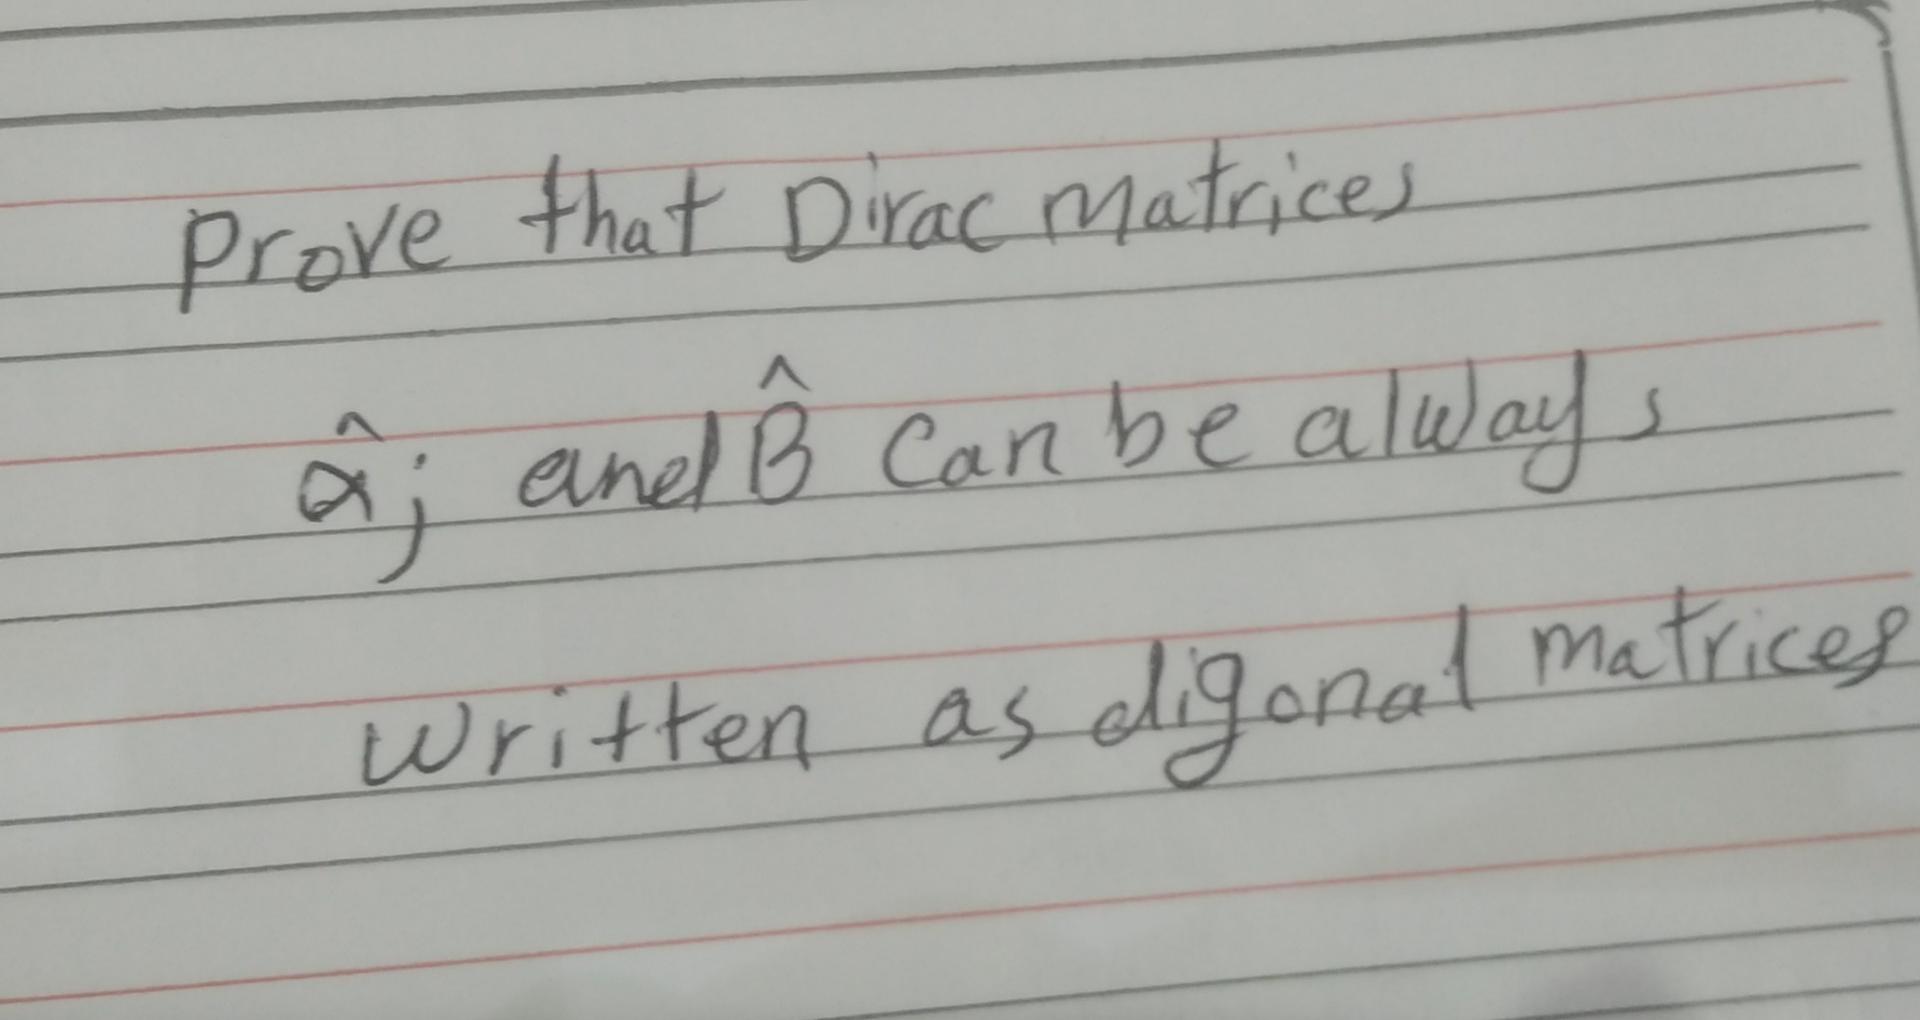 Prove that Dirac Matrices
α̂j and β̂ Can be always
written as digonal matrices